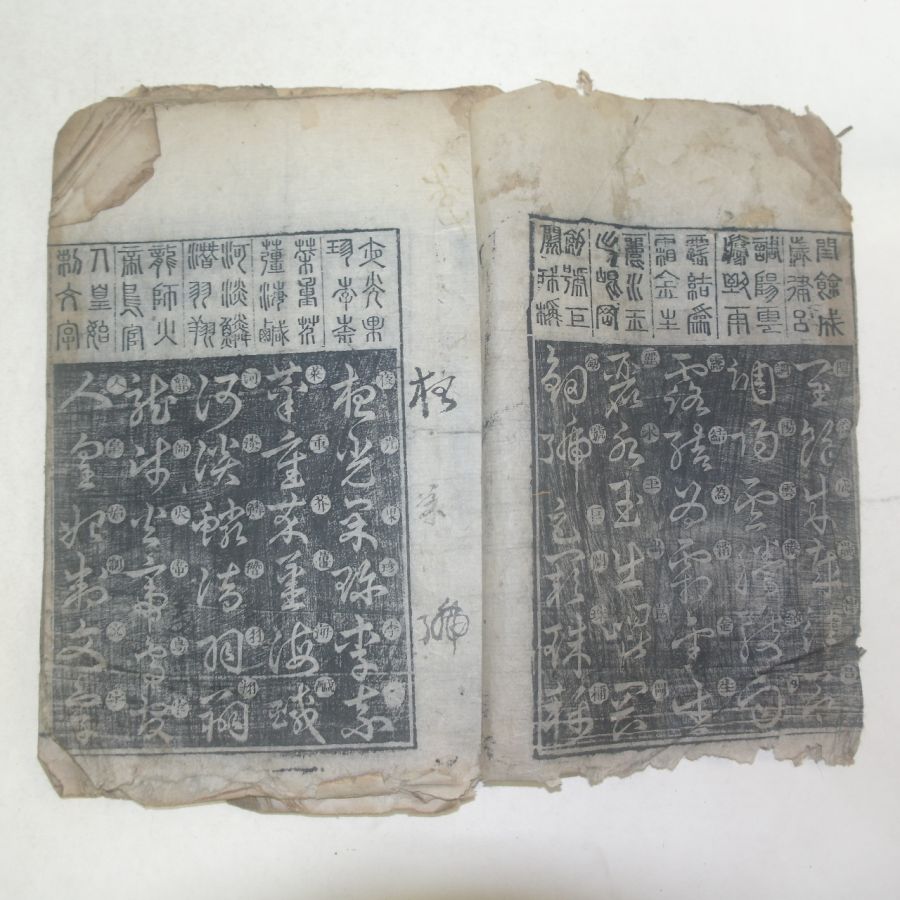 閏餘成
歲律呂
調陽雲
騰致雨
露結爲
霜金生
麗水玉
出崑岡
劍號巨
闕珠稱
閏餘成歲律呂
調陽雲騰致雨
露結為霜金生
麗水玉出崑岡
劍號巨闕珠稱
夜光果
珍李柰
菜重芥
薑海鹹
河淡鱗
潛羽翔
龍師火
帝鳥官
人皇始
制文字
夜光果珍李柰
菜重芥薑海鹹
河淡鱗潛羽翔
龍師火帝鳥官
人皇始制文字